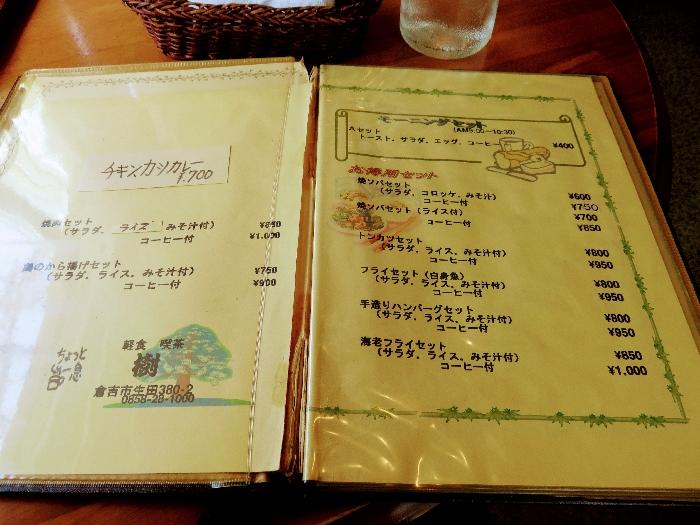 チキンカツカレー
¥.700
焼肉セット ¥850
(サラダ、ライス、みそ汁付) ¥1,000
コーヒー付
鶏のから揚げセット ¥750
(サラダ、ライス、みそ汁付) ¥900
コーヒー付
ちょっと
一息
軽食 喫茶
樹
倉吉市生田380-2
0858-28-1000
モーニングセット
Aセット (AM5:00~10:30)
トースト、サラダ、エッグ、コーヒー ¥400
お得用セット
焼ソバセット
(サラダ、コロッケ、みそ汁) ¥600
コーヒー付 ¥750
焼ソバセット(ライス付) ¥700
コーヒー付 ¥850
トンカツセット
(サラダ、ライス、みそ汁付) ¥800
コーヒー付 ¥950
フライセット(白身魚)
(サラダ、ライス、みそ汁付) ¥800
コーヒー付 ¥950
手造りハンバーグセット
(サラダ、ライス、みそ汁付) ¥800
コーヒー付 ¥950
海老フライセット
(サラダ、ライス、みそ汁付) ¥850
コーヒー付 ¥1,000